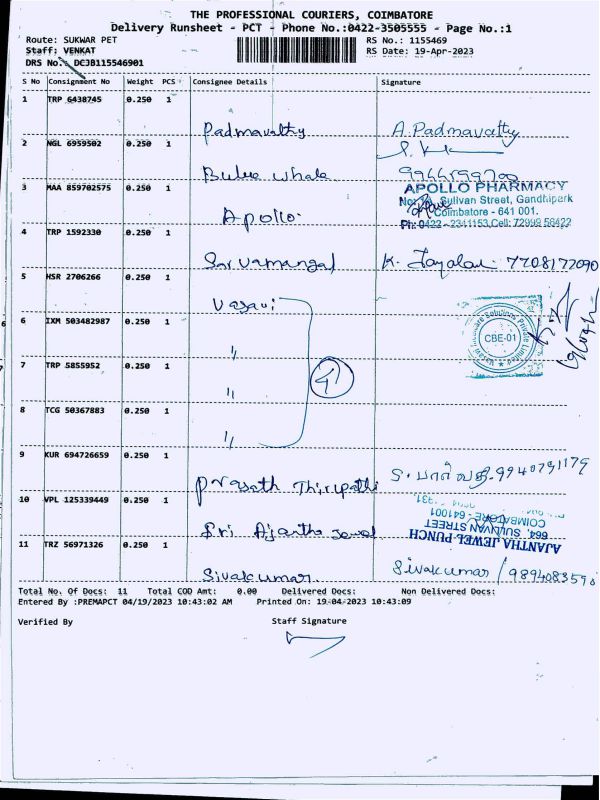 THE PROFESSIONAL COURIERS, COIMBATORE
Delivery Runsheet - PCT - Phone No.:0422-3505555 - Page No.:1
Route: SUKWAR PET
RS No.: 1155469
Staff: VENKAT
RS Date: 19-Apr-2023
DRS No.: DCJB115546901
S No Consignment No Weight PCS Consignee Details Signature
1 TRP 6438745 0.250 1
Padmavathy A. Padmavathy
2 NGL 6959502 0.250 1
Bulee whale
3 MAA 859702575 0.250 1
APOLLO PHARMACY
Sulivan Street, Gandhipark
Apollo. Coimbatore - 641 001.
Ph: 0422 - 2341153, Cell: 72996 56422
4 TRP 1592330 0.250 1
Sarvamangal K. Jayalan 7708177090
5 HSR 2706266 0.250 1
Vasavi
6 IXM 503482987 0.250 1
"
CBE-01
7 TRP 5855952 0.250 1
" 4
8 TCG 50367883 0.250 1
"
9 KUR 694726659 0.250 1
Prasath Thirupathi S. பார்வதி 9940791179
10 VPL 125339449 0.250 1
Sri Ajantha Jewel
AJANTHA JEWEL PUNCH
664, SULLIVAN STREET
COIMBATORE - 641001
11 TRZ 56971326 0.250 1
Sivakumar Sivakumar / 9894083590
Total No. Of Docs: 11 Total COD Amt: 0.00 Delivered Docs: Non Delivered Docs:
Entered By :PREMAPCT 04/19/2023 10:43:02 AM Printed On: 19-04-2023 10:43:09
Verified By Staff Signature